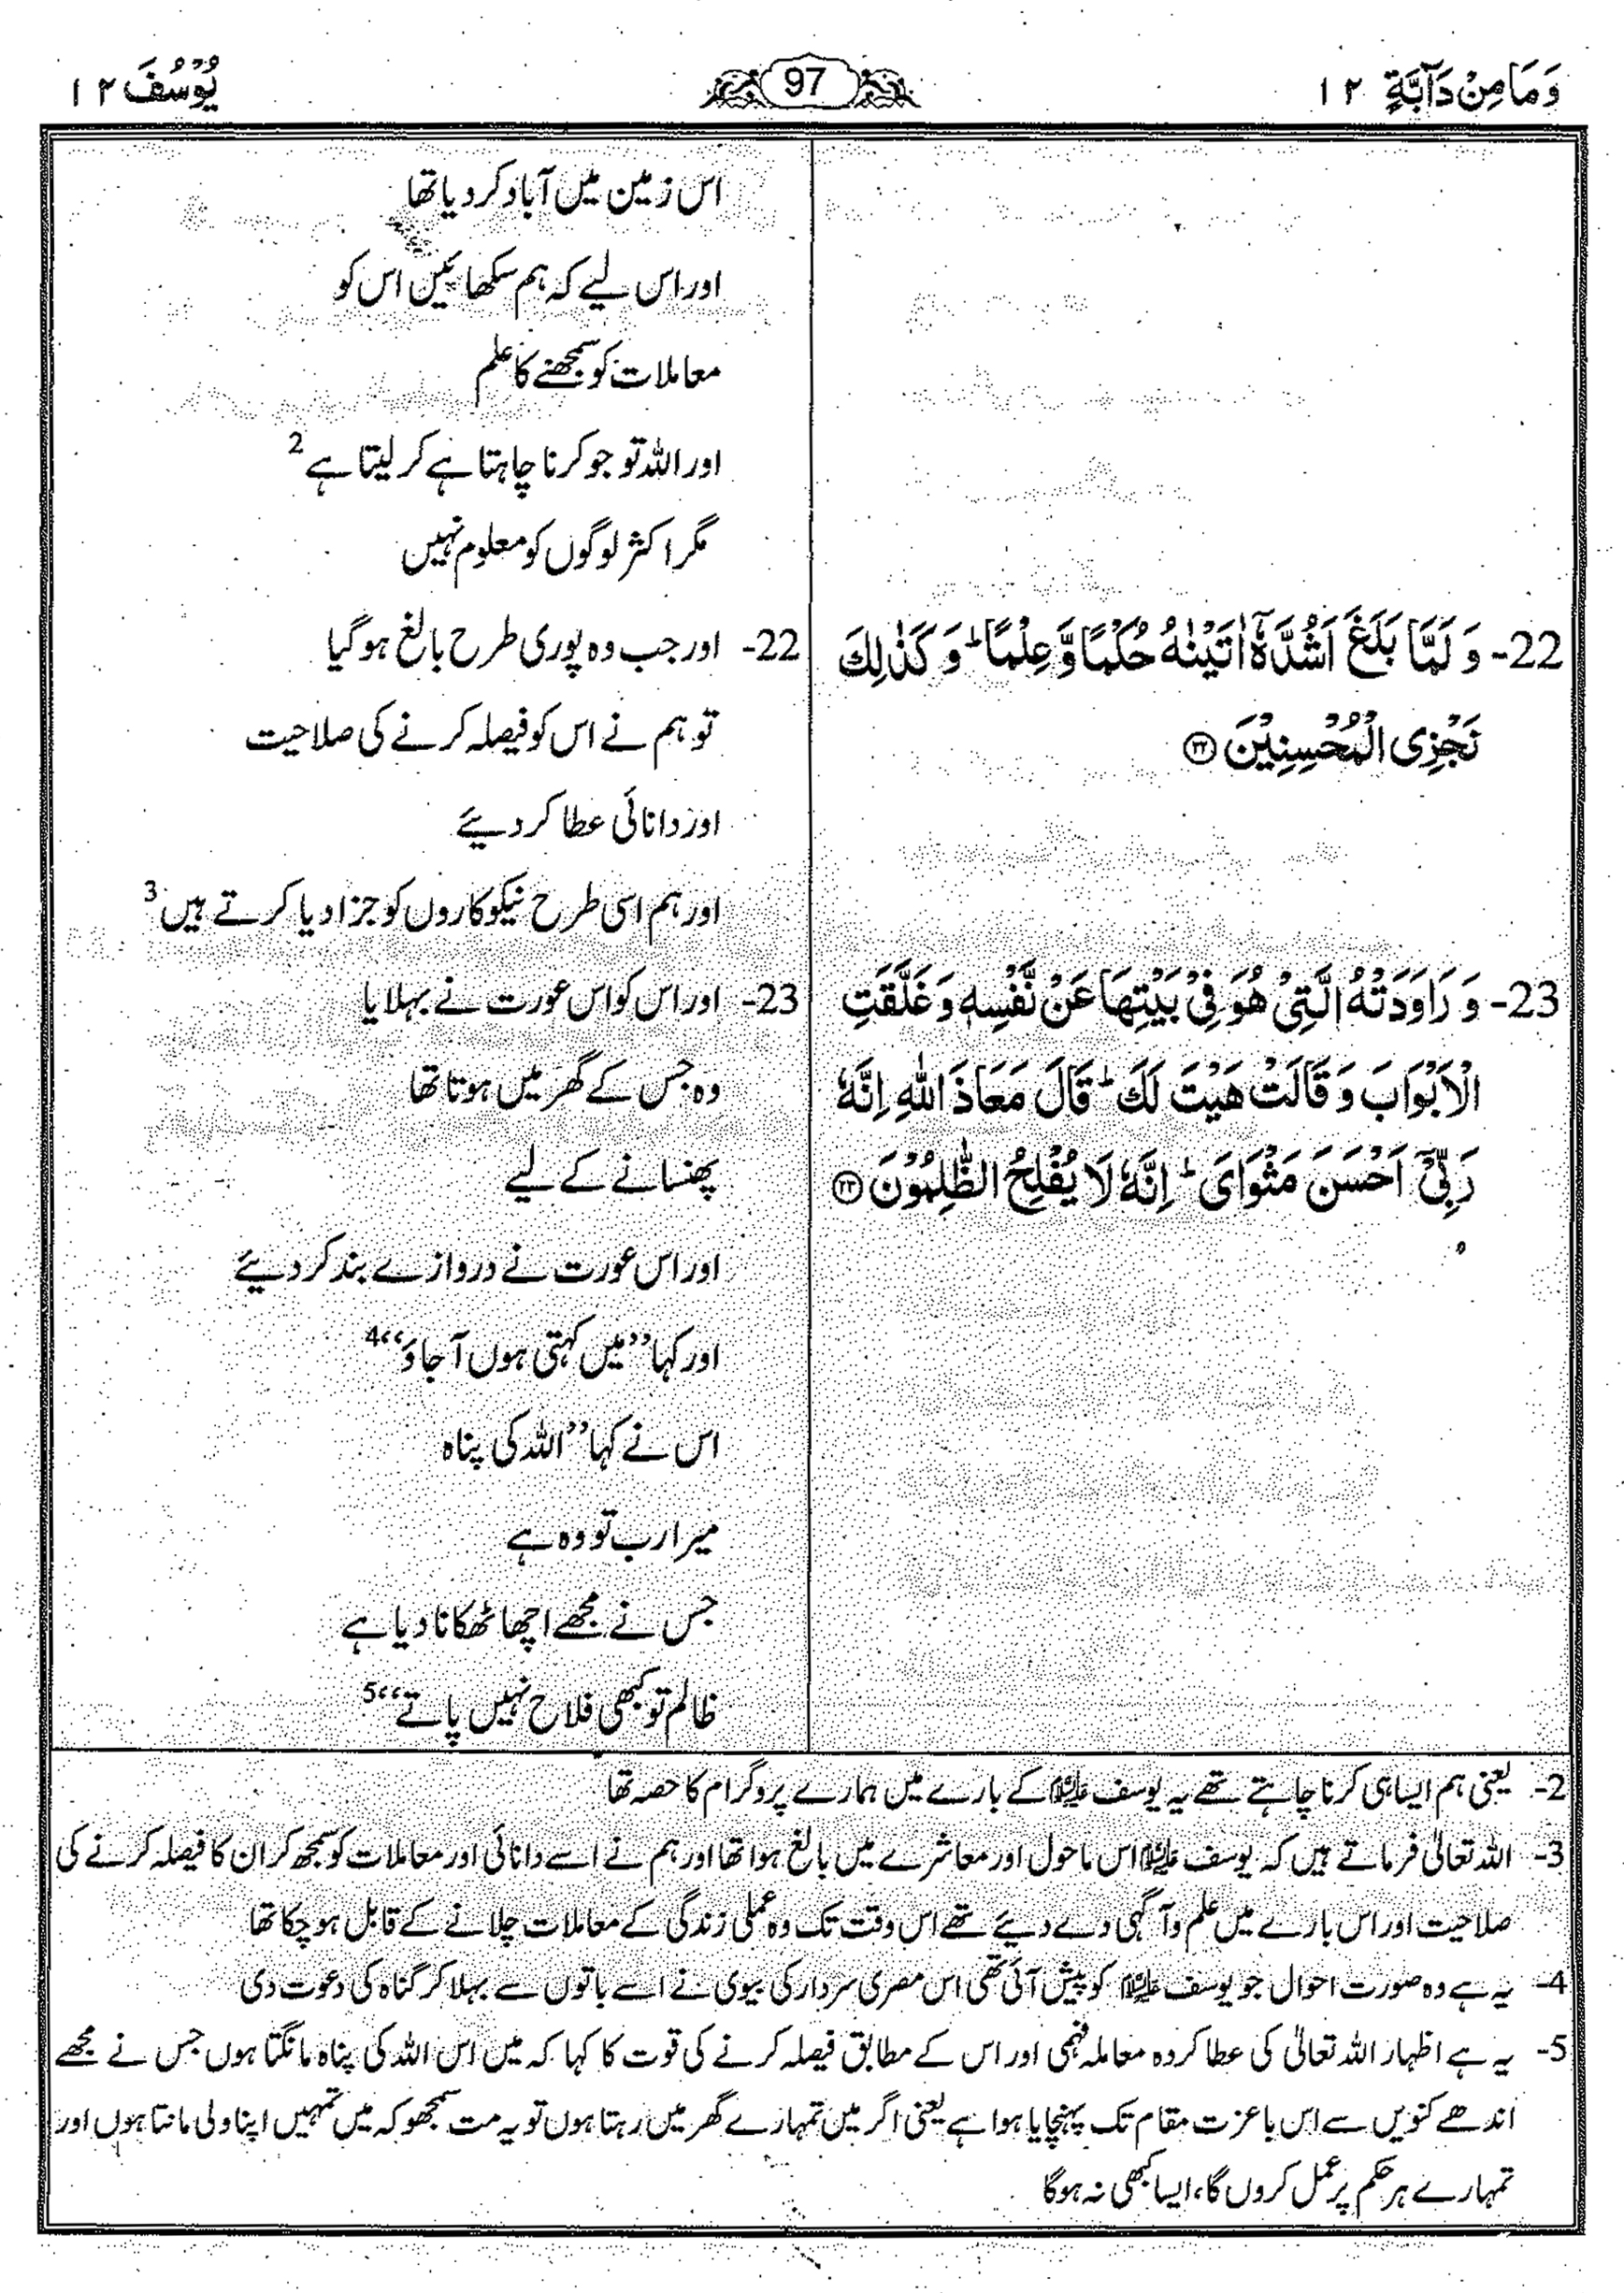 وَمَا مِنْ دَآبَّةٍ ۱۲
97
يُوْسُفَ ۱۲
اس زمین میں آباد کر دیا تھا
اور اس لیے کہ ہم سکھائیں اس کو
معاملات کو سمجھنے کا علم
اور اللہ تو جو کرنا چاہتا ہے کر لیتا ہے 2
مگر اکثر لوگوں کو معلوم نہیں
22- وَ لَمَّا بَلَغَ اَشُدَّهٗۤ اٰتَيْنٰهُ حُكْمًا وَّ عِلْمًا ؕ وَ كَذٰلِكَ
نَجْزِی الْمُحْسِنِيْنَ ﴿۲۲﴾
22- اور جب وہ پوری طرح بالغ ہو گیا
تو ہم نے اس کو فیصلہ کرنے کی صلاحیت
اور دانائی عطا کر دیئے
اور ہم اسی طرح نیکوکاروں کو جزا دیا کرتے ہیں 3
23- وَ رَاوَدَتْهُ الَّتِیْ هُوَ فِیْ بَيْتِهَا عَنْ نَّفْسِهٖ وَ غَلَّقَتِ
الْاَبْوَابَ وَ قَالَتْ هَيْتَ لَكَ ؕ قَالَ مَعَاذَ اللّٰهِ اِنَّهٗ
رَبِّیْۤ اَحْسَنَ مَثْوَایَ ؕ اِنَّهٗ لَا يُفْلِحُ الظّٰلِمُوْنَ ﴿۲۳﴾
23- اور اس کو اس عورت نے بہلایا
وہ جس کے گھر میں ہوتا تھا
پھنسانے کے لیے
اور اس عورت نے دروازے بند کر دیئے
اور کہا ’’میں کہتی ہوں آ جاؤ‘‘ 4
اس نے کہا ’’اللہ کی پناہ
میرا رب تو وہ ہے
جس نے مجھے اچھا ٹھکانا دیا ہے
ظالم تو کبھی فلاح نہیں پاتے‘‘ 5
2- یعنی ہم ایسا ہی کرنا چاہتے تھے یہ یوسف علیہ السلام کے بارے میں ہمارے پروگرام کا حصہ تھا
3- اللہ تعالیٰ فرماتے ہیں کہ یوسف علیہ السلام اس ماحول اور معاشرے میں بالغ ہوا تھا اور ہم نے اسے دانائی اور معاملات کو سمجھ کر ان کا فیصلہ کرنے کی
صلاحیت اور اس بارے میں علم و آگہی دے دیئے تھے اس وقت تک وہ عملی زندگی کے معاملات چلانے کے قابل ہو چکا تھا
4- یہ ہے وہ صورت احوال جو یوسف علیہ السلام کو پیش آئی تھی اس مصری سردار کی بیوی نے اسے باتوں سے بہلا کر گناہ کی دعوت دی
5- یہ ہے اظہار اللہ تعالیٰ کی عطا کردہ معاملہ فہمی اور اس کے مطابق فیصلہ کرنے کی قوت کا کہا کہ میں اس اللہ کی پناہ مانگتا ہوں جس نے مجھے
اندھے کنویں سے اس باعزت مقام تک پہنچایا ہوا ہے یعنی اگر میں تمہارے گھر میں رہتا ہوں تو یہ مت سمجھو کہ میں تمہیں اپنا ولی مانتا ہوں اور
تمہارے ہر حکم پر عمل کروں گا، ایسا کبھی نہ ہوگا